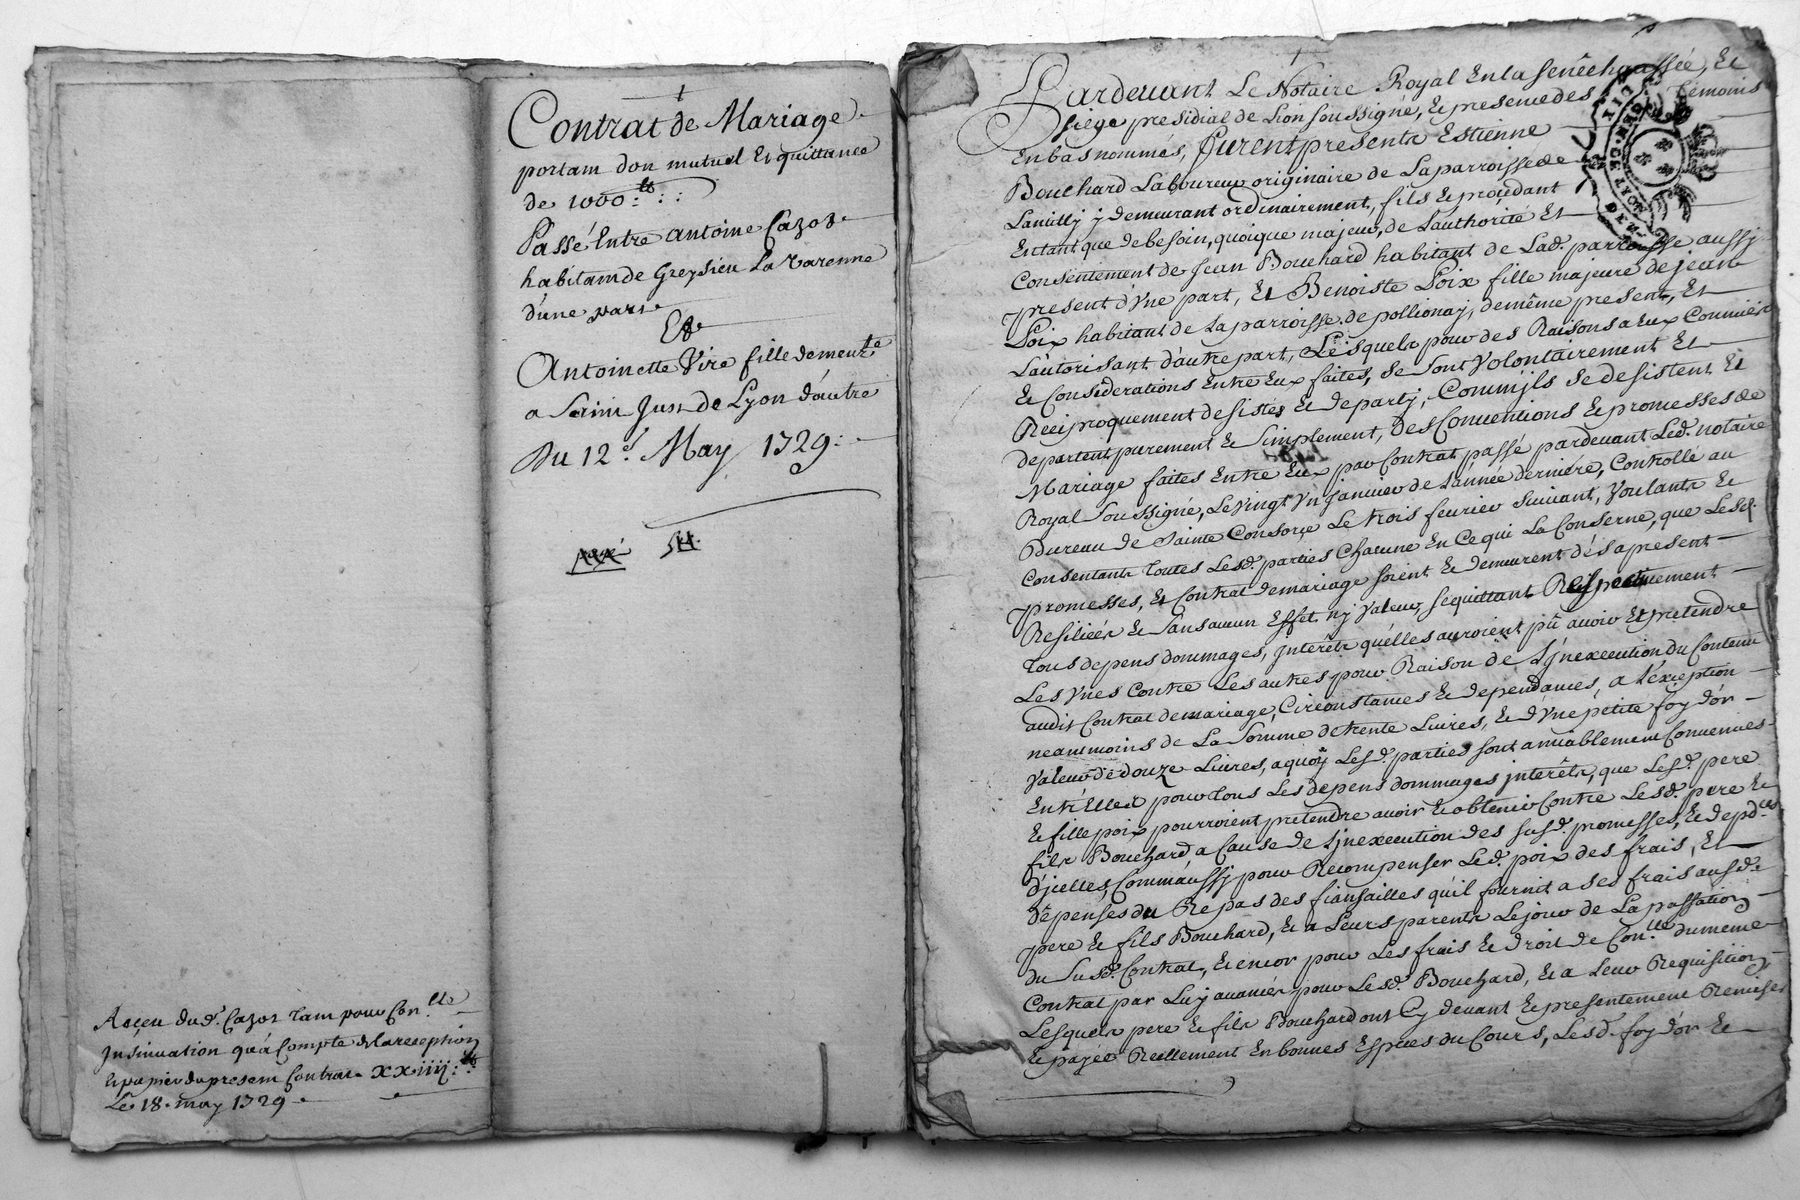 Contrat de Mariage
portam don mutuel Et quittance
de 1000.lt
Passé Entre antoine Cazot
habitam de Greysieu La Varenne
d'une part
Et
Antoinette Vire fille demeur.te
a Saim Just de Lyon d'autre
Du 12.e May 1729.
Reçeu dud. Cazot tam pour Con.lle
Insinuation qu'a Compte de la reception
Et papier du presem Contrat XXiiij.lt
Le 18. may 1729
Pardevant Le Notaire Royal En la Senêchaussée, Et
siege presidial de Lion soussigné, Et presence des Temoins
En bas nommés, furent presents Estienne
Bouchard Laboureur originaire de La parroisse de
y demeurant ordinairement, fils Et procedant
En tant que de besoin, quoique majeur, de L'authorité Et
Consentement de Jean Bouchard habitant de Lad. parroisse aussy
present d'vne part, Et Benoiste Poix fille majeure de jean
Poix habitant de La parroisse de pollionay, demême present, Et
L'autorisant d'autre part, Lésquels pour des Raisons a Eux Connües
Et Considerations Entre Eux faites, se sont Volontairement Et
Reciproquement desistés Et departy, Comm'ils se desistent Et
departent purement Et simplement, des Conventions Et promesses de
Mariage faites Entre Eux par Contrat passé pardevant Led. notaire
Royal soussigné, Le vingt vn janvier de L'année derniére, Controllé au
Bureau de Sainte Consorce Le trois fevrier suivant, Voulants Et
Consentants toutes Lesd. parties Chacune En Ce qui La Conserne, que Lesd.
promesses, Et Contrat de mariage soient Et demeurent dés a present
Resiliées Et sans aucun Effet ny valeur, se quittant Respectivement
tous depens dommages, interêts qu'elles auroient pû avoir Et pretendre
Les vnes Contre Les autres pour Raison de L'jnexecution du Contenu
audit Contrat de mariage, Circonstances Et dependances, a L'exception
neanmoins de La Somme de trente Livres, Et d'vne pétite foy d'or
valeur de douze Livres, a quoy Lesd. parties sont amiablement Convenues
Entr'Elles pour tous Les depens dommages interêts, que Lesd. pere
Et fille poix pourroient pretendre avoir Et obtenir Contre Lesd. pere Et
fils Bouchard, a Cause de L'jnexecution des susd. promesses, Et depd.ces
d'jcelles, Comm'aussy pour Recompenser Led. poix des frais, Et
dépenses du Repas des fiansailles qu'il fournit a ses frais ausd.
pere Et fils Bouchard, Et a Leurs parents Le jour de La passation
du susd. Contrat, Et encor pour Les frais Et droit de Con.lle du même
Contrat par Luy avancés pour Lesd. Bouchard, Et a Leur Requisition
Lesquels pere Et fils Bouchard ont Cy devant Et presentement Remises
Et payées Réellement En bonnes Especes du Cours, Lesd. foy d'or Et